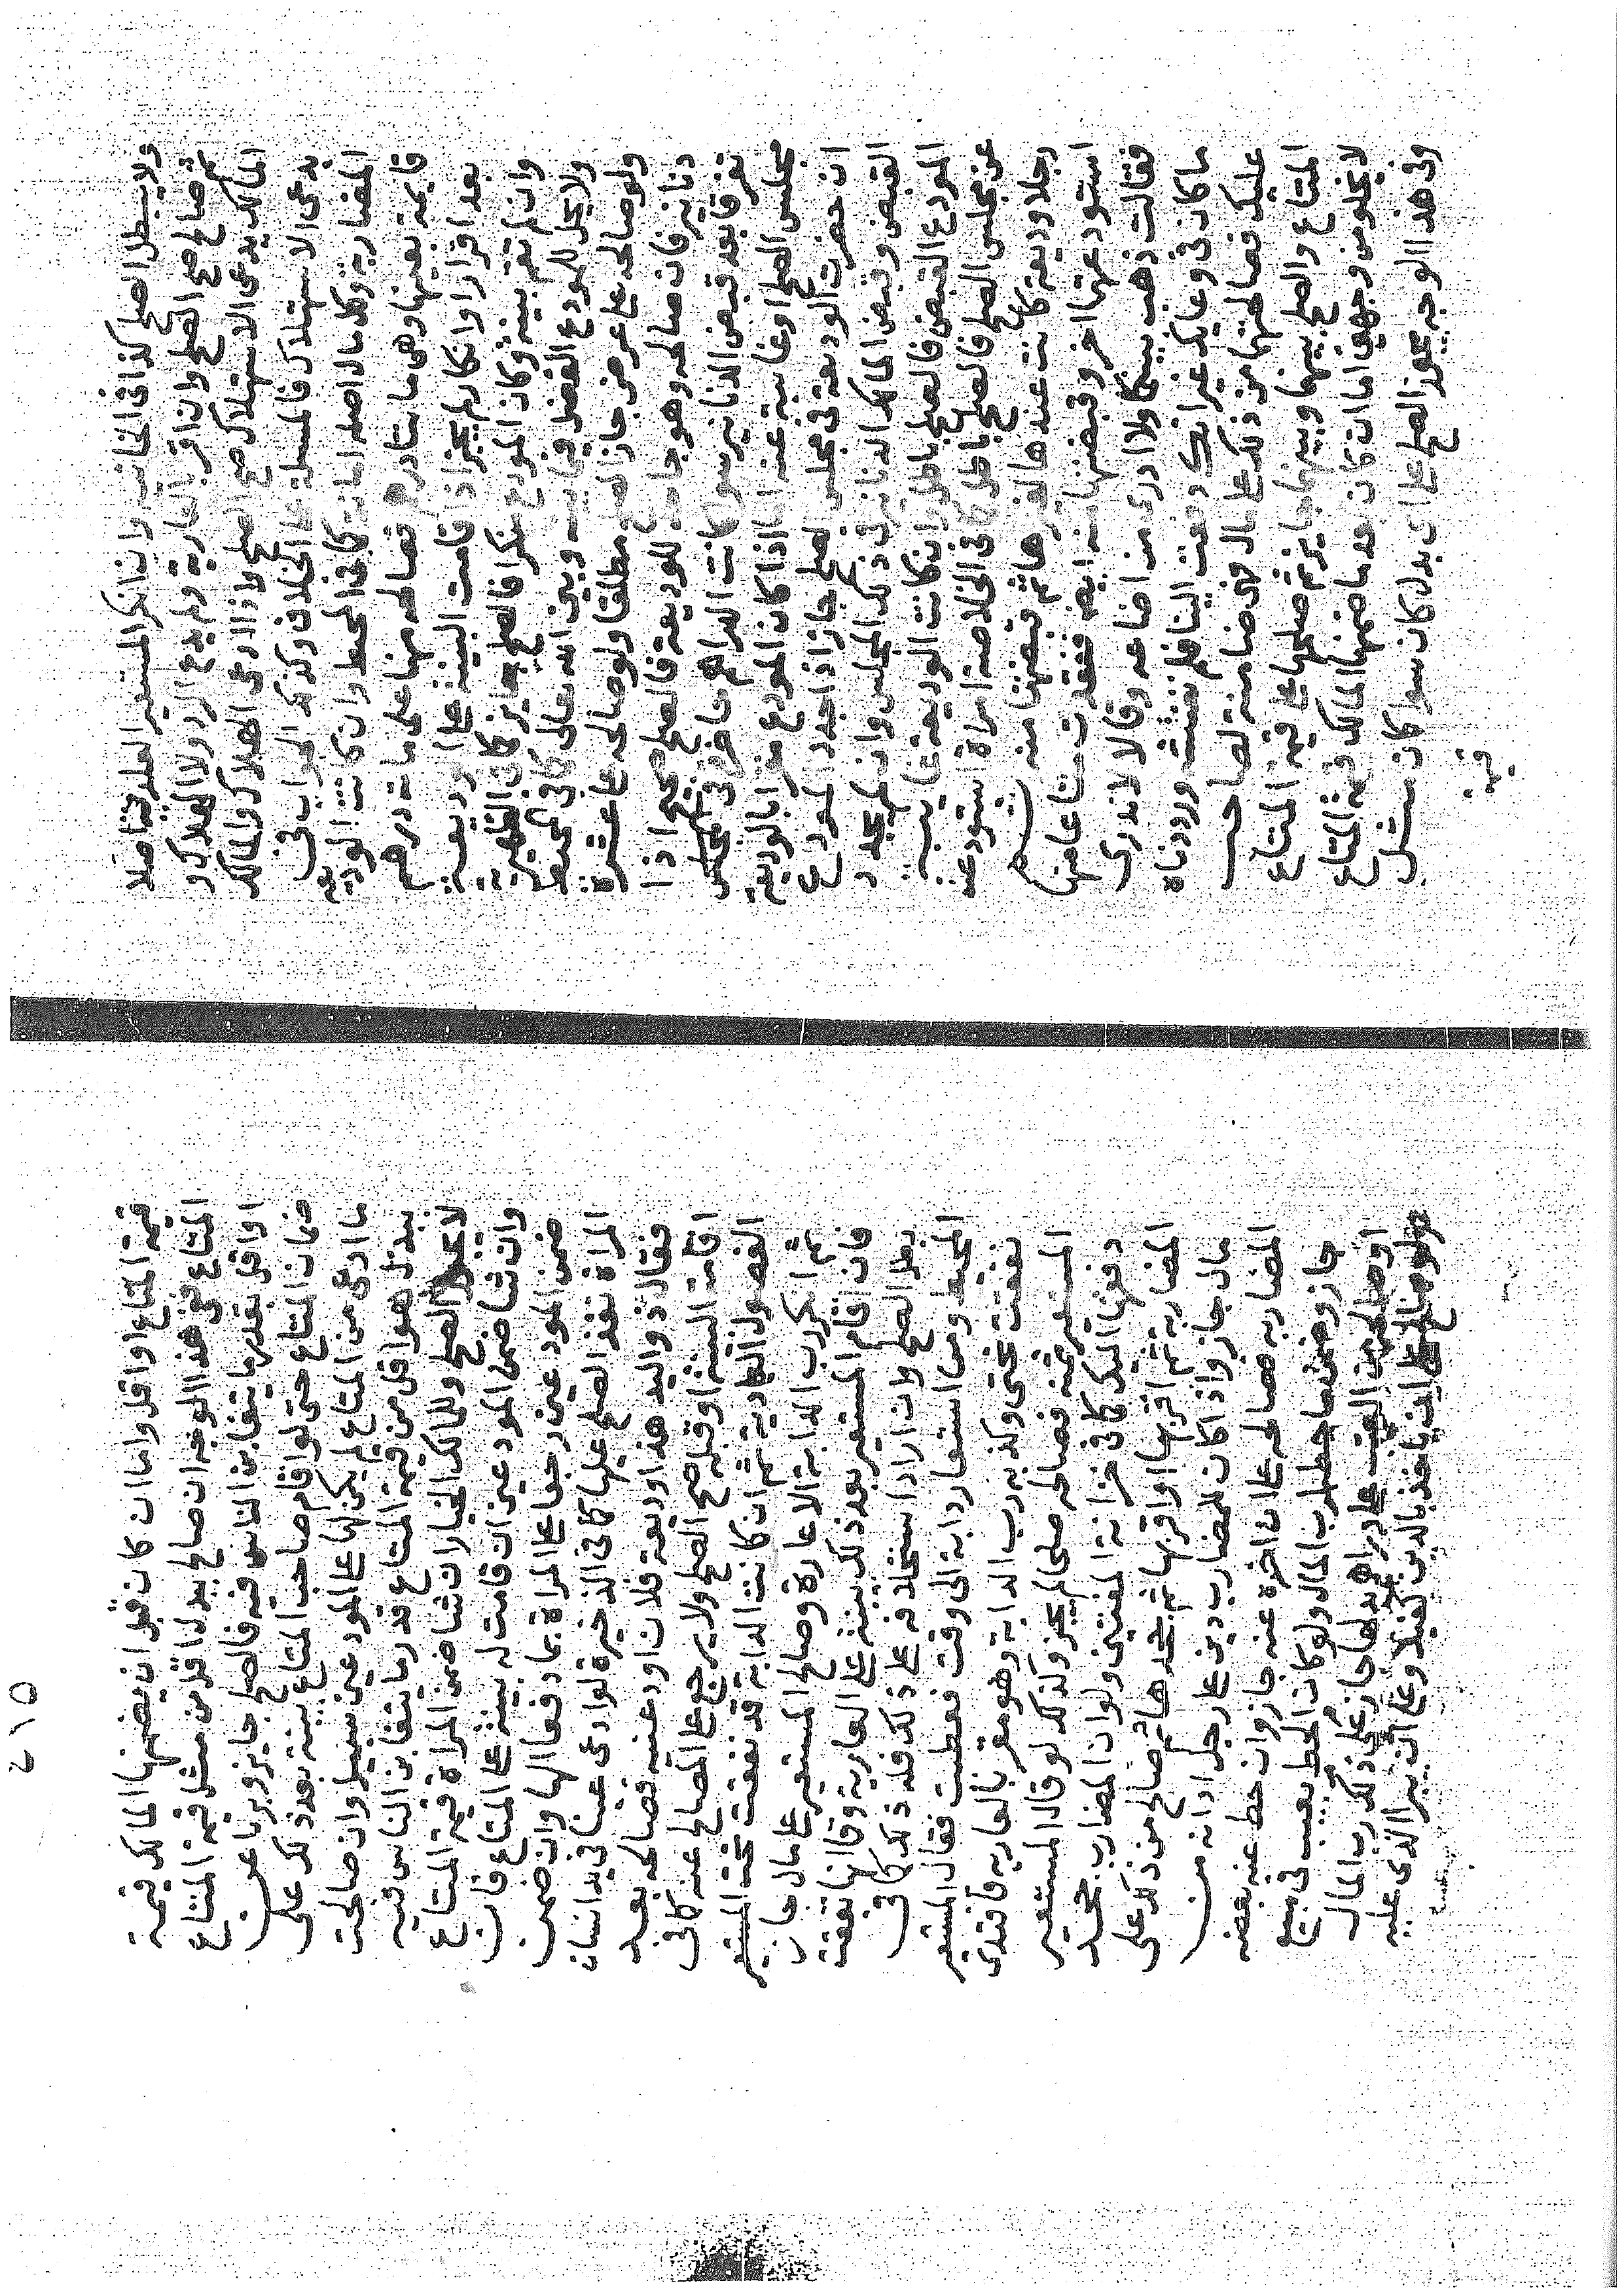 ولا يبطل الصلح كذا في الخانيه وان انكر المستعير العارية اصلا
ثم صالح صح الصلح وان اقر بالعارية ولم يدع الرد ولا الهلاك و
المالك يدعي الاستهلاك صح الصلح ولاذا ادعى الهلاك والمالك
يدعى الاستهلاك فالمسلة على الخلاف وكذلك الجواب في
المضاربة وكل مال اصله امانة كما في المحيط وان كانت الوديعة
قايمة بعينها وهى مايتا درهم فصالحه منها على ماية درهم
بعد اقرار او انكار لم يجز اذا قامت البينة على الوديعة
وان لم تقم بينة وكان المودع منكرا فالصلح جايز كما في الظهيرية
ولا يحل للمودع الفضل فيما بينه وبين الله تعالى كما في المحيط
ولو صالحه على عرض جاز الصلح مطلقا ولو صالحه على عشرة
دنانير فان صالحه وهو جاحد للوديعة فالصلح صحيح اذا
تفرقا بعد قبض الدنانير سوا كانت الدراهم حاضرة في مجلس
مجلس الصلح او غايبة عنه اما اذا كان المودع مقرا بالوديعة
ان حضرت الوديعة في مجلس الصلح جاز اذا جدد المودع
القبض وقبض المالك الدنانير في ذلك المجلس وان لم يجدد
المودع القبض فالصلح باطل وان كانت الوديعة غايبة
عن مجلس الصلح فالصلح باطل كما في الخلاصة امراة استودعت
رجلا وديعة كانت عندها لغيرها ثم قبضتها منه ثم
استودعتها اخر وقبضتها منه ايضا ففقدت متاعا منها
فقالت ذهب بينكما ولا ادرى من اضاعه وقالا لا ندرى
ما كان في وعايك غير انك دفعت الينا فلم نفتش ورددناه
عليك فصالحتهما من ذلك على مال فهى ضامنة لصاحب
المتاع والصلح بينهما وبينها جايز ثم صلحها على قيمة المتاع
لا يخلو من وجهين اما ان كان بعد ما ضمنها المالك قيمة المتاع
وفي هذا الوجه يجوز الصلح على اى بدل كان سوا كان مثل
قيمة
٤١٥
قيمة المتاع او اقل واما ان كان قبل ان يضمنها المالك قيمة
المتاع ففي هذا الوجه ان صالح ببدل اقل من مثل قيمة المتاع
او اقل بقدر ما يتغابن الناس فيه فالصلح جايز وبريا عن
ضمان المتاع حتى لو اقام صاحب المتاع بينة بعد ذلك على
ما ادعى من المتاع لم يكن لها على المودعين سبيل وان صالحت
ببدل هو اقل من قيمة المتاع قدر ما يتغابن الناس فيه
لا يجوز الصلح وللمالك الخيار ان شا ضمن المراة قيمة المتاع
وان شا ضمن المودعين ان قامت له بينة على المتاع فان
ضمن المودعين رجعا على المراة بما دفعا اليها وان ضمن
المراة نفذ الصلح عليها كما في الذخيرة لو ادعى عينا في يد انسان
فقال ذو اليد هذا وديعة فلان اودعنيه فصالحه بعد
اقامة البينة او قبله صح الصلح ولا يرجع على المصالح عنه كما في
الفصول العمادية ثم ان كانت الدابة قد نفقت تحت المستعير
ثم انكر رب الدابة الاعارة وصالح المستعير على مال جاز
فان اقام المستعير بعد ذلك بينة على العارية وقال انها نفقت
بطل الصلح وان اراد استحلافه على ذلك فله ذلك كما في
المحيط ومن استعار دابة الى وقت فعطبت فقال المستعير
نفقت تحتى وكذبه رب الدابة وهو مقر بالعارية فافتدى
المستعير منه فصالحه صلحا لم يجز وكذلك لو قال المستعير
دفعتها اليك كما في خزانة المفتين ولو ان المضارب جحد
المضاربة ثم اقر بها او اقر بها ثم جحدها ثم صالح من ذلك على
مال جاز واذا كان للمضارب دين على رجل ادانه من
المضاربه فصالحه على ان اخره عنه جاز وان حط عنه بعضه
جاز وضمن ما حط لرب المال ولو كان الحط بعيب في مبيع
او صالحه من العيب على دراهم دفعها جاز على ذلك رب المال
ولو صالح على ان ياخذ بالدين كفيلا وعلى ان يبرا الذى عليه